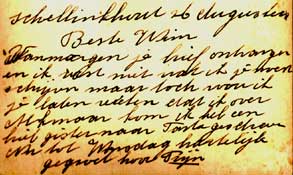 Schellinkhout 26 Augustus
Beste Wim
Vanmorgen je brief ontvangen
en ik weet niet wat ik je moet
schrijven maar toch wou ik
je laten weten dat ik over
kom ik heb een
brief gister naar Tante geschreven
Nu tot Vrijdag hartelijk
gegroet hoor Tijn